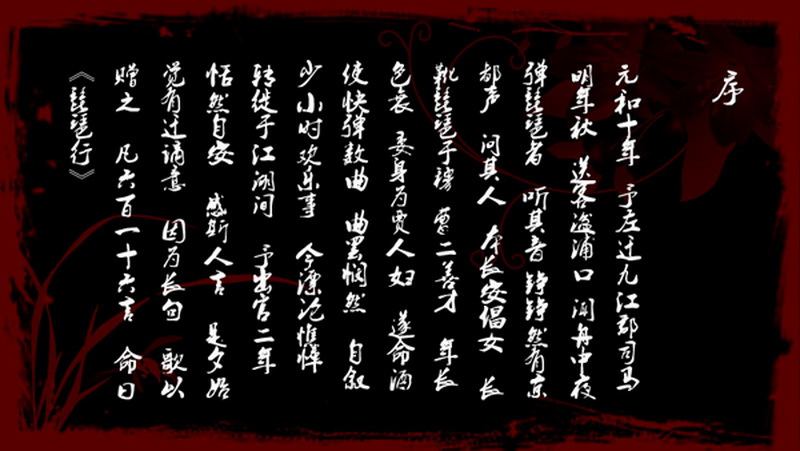 序
元和十年 予左迁九江郡司马
明年秋 送客湓浦口 闻舟中夜
弹琵琶者 听其音 铮铮然有京
都声 问其人 本长安倡女 长
靴琵琶于穆 曹二善才 年长
色衰 委身为贾人妇 遂命酒
使快弹数曲 曲罢悯然 自叙
少小时欢乐事 今漂沦憔悴
转徙于江湖间 予出官二年
恬然自安 感斯人言 是夕始
觉有迁谪意 因为长句 歌以
赠之 凡六百一十六言 命曰
《琵琶行》